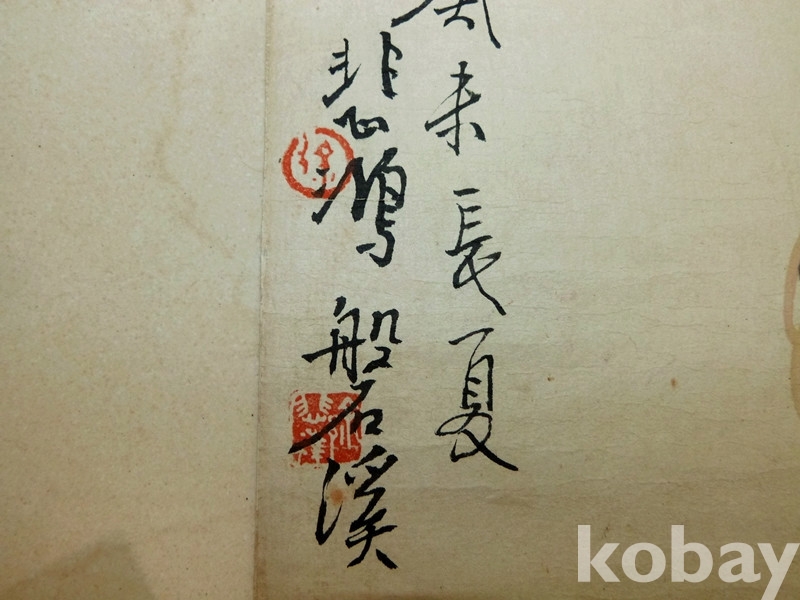 未長夏
悲鴻磐石溪
kobay